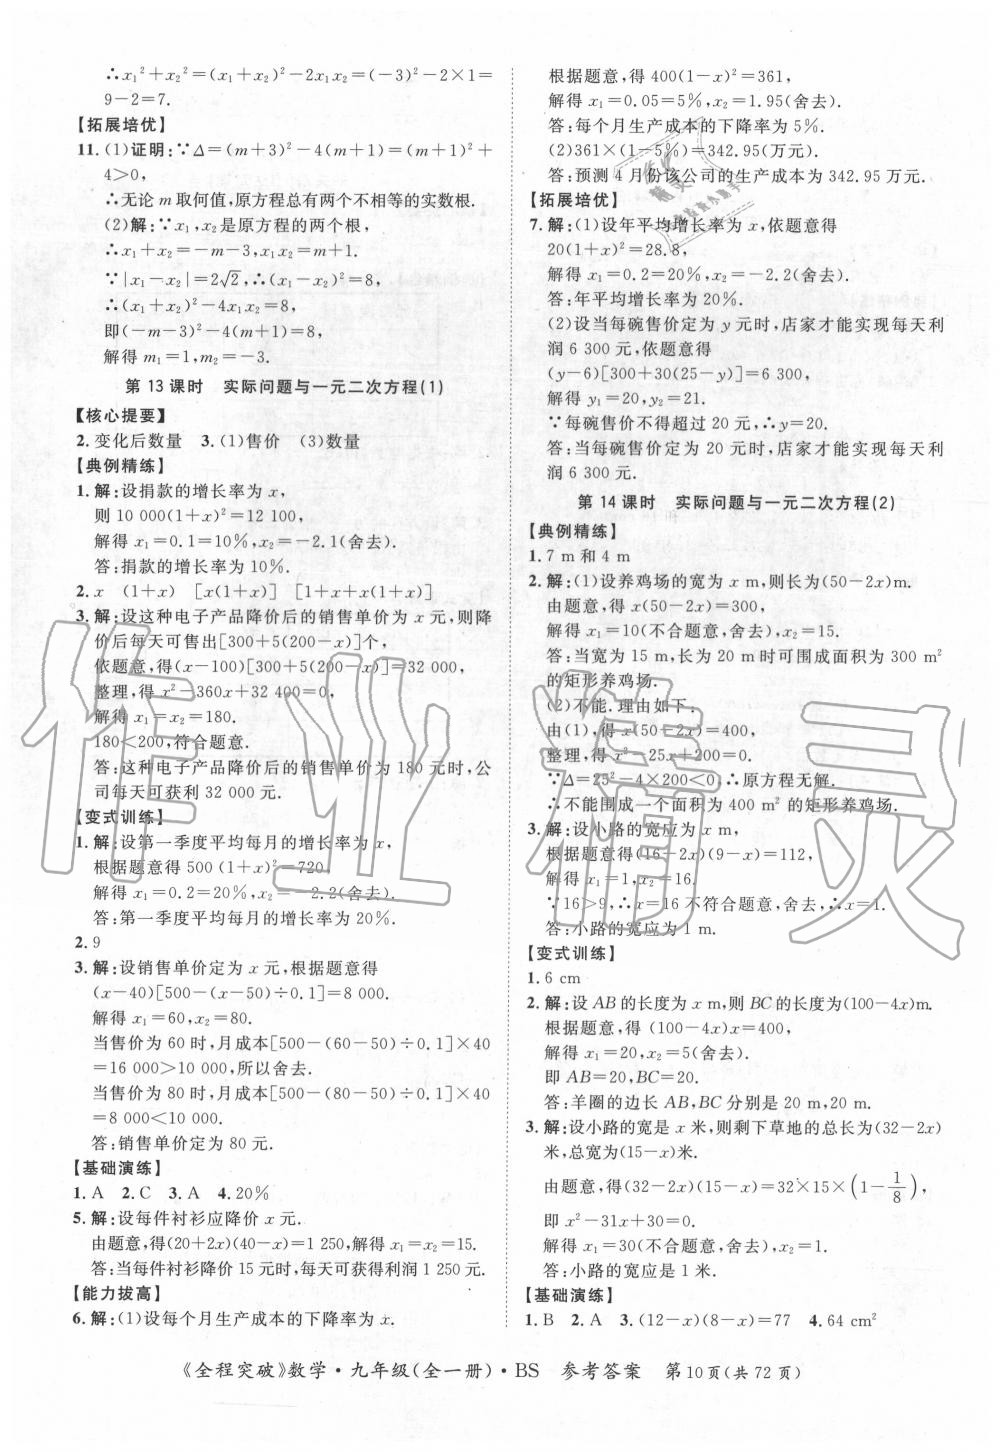 ∴x₁²+x₂²=(x₁+x₂)²-2x₁x₂=(-3)²-2×1=
9-2=7.
【拓展培优】
11. (1)证明:∵Δ=(m+3)²-4(m+1)=(m+1)²+
4>0,
∴无论 m 取何值,原方程总有两个不相等的实数根.
(2)解:∵x₁,x₂是原方程的两根,
∴x₁+x₂=-m-3,x₁x₂=m+1.
∵|x₁-x₂|=2√2,∴(x₁-x₂)²=8,
∴(x₁+x₂)²-4x₁x₂=8,
即(-m-3)²-4(m+1)=8,
解得 m₁=1,m₂=-3.
第 13 课时 实际问题与一元二次方程(1)
【核心提要】
2. 变化后数量 3. (1)售价 (3)数量
【典例精练】
1. 解:设捐款的增长率为 x,
则 10 000(1+x)²=12 100,
解得 x₁=0.1=10%,x₂=-2.1(舍去).
答:捐款的增长率为 10%.
2. x (1+x) [x(1+x)] [1+x+x(1+x)]
3. 解:设这种电子产品降价后的销售单价为 x 元,则降
价后每天可售出[300+5(200-x)]个,
依题意,得(x-100)[300+5(200-x)]=32 000,
整理,得 x²-360x+32 400=0,
解得 x₁=x₂=180.
180<200,符合题意.
答:这种电子产品降价后的销售单价为 180 元时,公
司每天可获利 32 000 元.
【变式训练】
1. 解:设第一季度平均每月的增长率为 x,
根据题意得 500 (1+x)²=720,
解得 x₁=0.2=20%,x₂=-2.2(舍去).
答:第一季度平均每月的增长率为 20%.
2. 9
3. 解:设销售单价定为 x 元,根据题意得
(x-40)[500-(x-50)÷0.1]=8 000,
解得 x₁=60,x₂=80.
当售价为 60 时,月成本[500-(60-50)÷0.1]×40
=16 000>10 000,所以舍去.
当售价为 80 时,月成本[500-(80-50)÷0.1]×40
=8 000<10 000.
答:销售单价定为 80 元.
【基础演练】
1. A 2. C 3. A 4. 20%
5. 解:设每件衬衫应降价 x 元.
由题意,得(20+2x)(40-x)=1 250,解得 x₁=x₂=15.
答:当每件衬衫降价 15 元时,每天可获得利润 1 250 元.
【能力拔高】
6. 解:(1)设每个月生产成本的下降率为 x.
根据题意,得 400(1-x)²=361,
解得 x₁=0.05=5%,x₂=1.95(舍去).
答:每个月生产成本的下降率为 5%.
(2)361×(1-5%)=342.95(万元).
答:预测 4 月份该公司的生产成本为 342.95 万元.
【拓展培优】
7. 解:(1)设年平均增长率为 x,依题意得
20(1+x)²=28.8,
解得 x₁=0.2=20%,x₂=-2.2(舍去).
答:年平均增长率为 20%.
(2)设当每碗售价定为 y 元时,店家才能实现每天利
润 6 300 元,依题意得
(y-6)[300+30(25-y)]=6 300,
解得 y₁=20,y₂=21.
∵每碗售价不得超过 20 元,∴y=20.
答:当每碗售价定为 20 元时,店家才能实现每天利
润 6 300 元.
第 14 课时 实际问题与一元二次方程(2)
【典例精练】
1. 7 m 和 4 m
2. 解:(1)设养鸡场的宽为 x m,则长为(50-2x)m.
由题意,得 x(50-2x)=300,
解得 x₁=10(不合题意,舍去),x₂=15.
答:当宽为 15 m,长为 20 m 时可围成面积为 300 m²
的矩形养鸡场.
(2)不能. 理由如下:
由(1),得 x(50-2x)=400,
整理,得 x²-25x+200=0.
∵Δ=25²-4×200<0,∴原方程无解.
∴不能围成一个面积为 400 m² 的矩形养鸡场.
3. 解:设小路的宽应为 x m,
根据题意得(16-2x)(9-x)=112,
解得 x₁=1,x₂=16.
∵16>9,∴x=16 不符合题意,舍去,∴x=1.
答:小路的宽应为 1 m.
【变式训练】
1. 6 cm
2. 解:设 AB 的长度为 x m,则 BC 的长度为(100-4x)m.
根据题意,得 (100-4x)x=400,
解得 x₁=20,x₂=5(舍去).
即 AB=20,BC=20.
答:羊圈的边长 AB,BC 分别是 20 m,20 m.
3. 解:设小路的宽是 x 米,则剩下草地的总长为(32-2x)
米,总宽为(15-x)米.
由题意,得(32-2x)(15-x)=32×15×(1-1/8),
即 x²-31x+30=0.
解得 x₁=30(不合题意,舍去),x₂=1.
答:小路的宽应是 1 米.
【基础演练】
1. B 2. A 3. (12-x)(8-x)=77 4. 64 cm²
《全程突破》数学·九年级(全一册)·BS 参考答案 第10页(共 72 页)
作业精灵